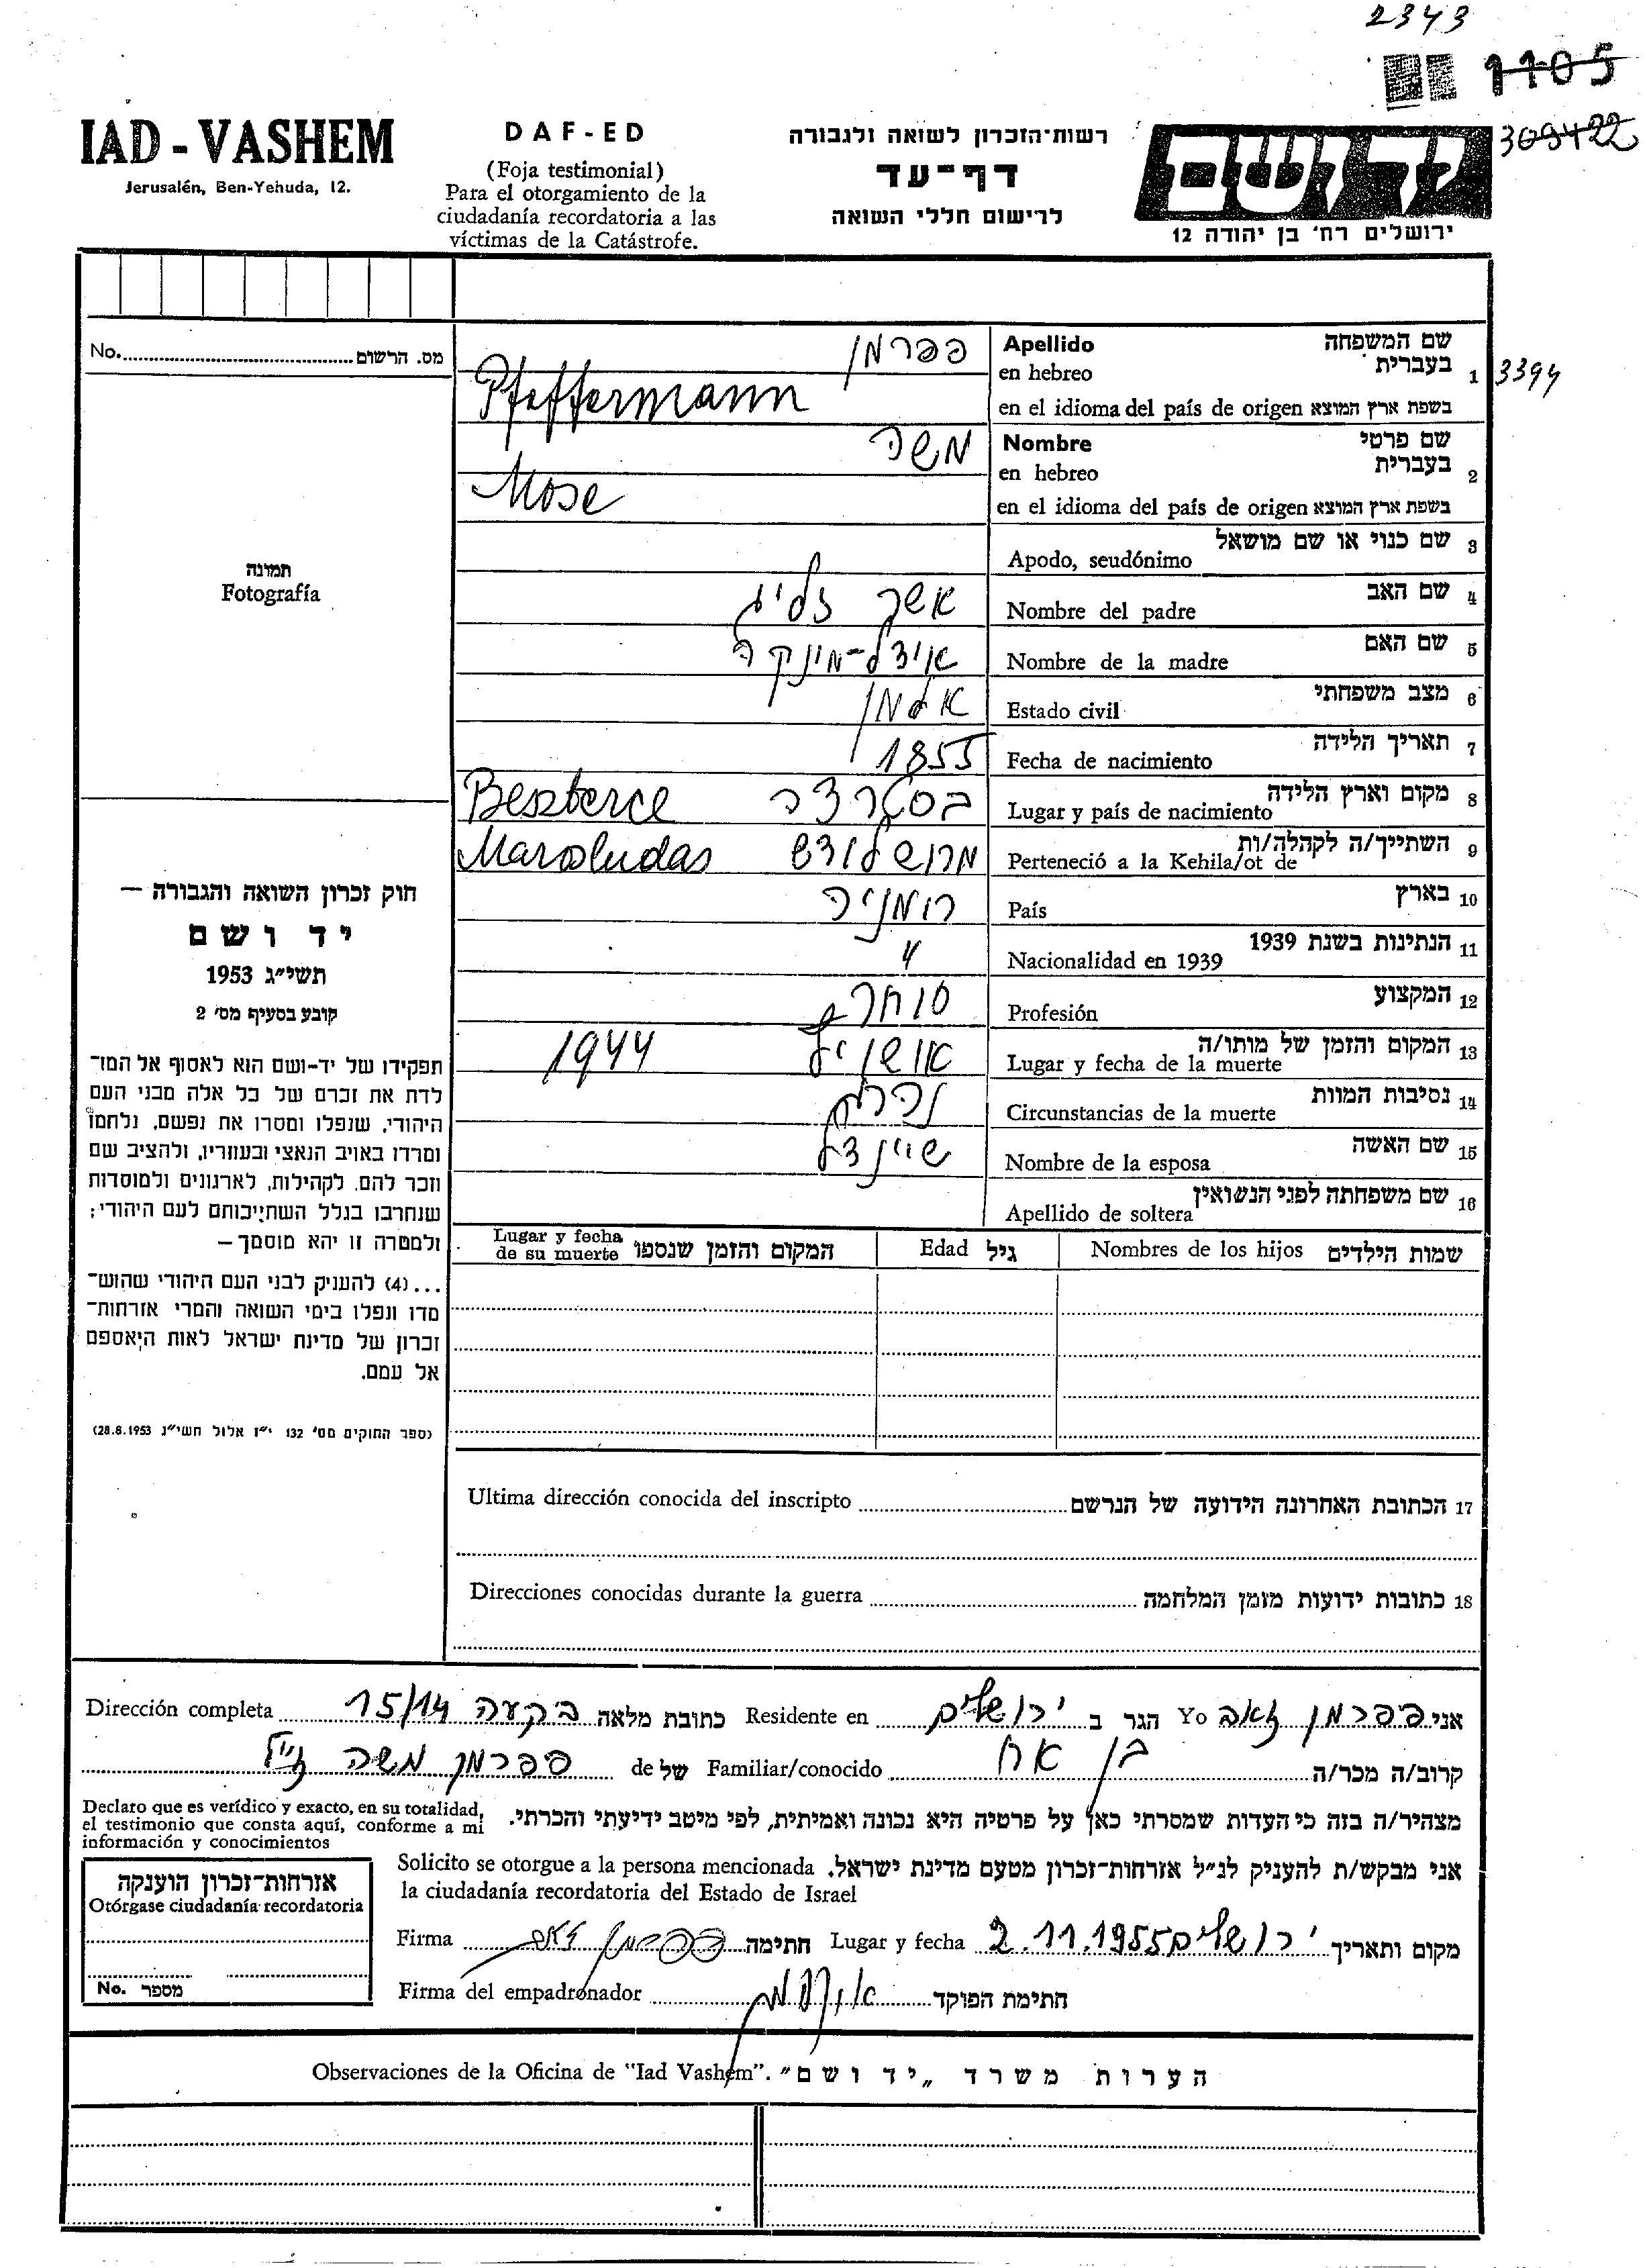 2343
1105
309422
IAD - VASHEM
Jerusalén, Ben-Yehuda, 12.
DAF-ED
(Foja testimonial)
Para el otorgamiento de la
ciudadanía recordatoria a las
víctimas de la Catástrofe.
רשות-הזכרון לשואה ולגבורה
דף-עד
לרישום חללי השואה
יד ושם
ירושלים רח' בן יהודה 12
No. מס. הרשום
תמונה
Fotografía
שם המשפחה Apellido
1 בעברית en hebreo פפרמן
3394
בשפת ארץ המוצא en el idioma del país de origen Pfeffermann
שם פרטי Nombre
2 בעברית en hebreo משה
בשפת ארץ המוצא en el idioma del país de origen Mose
3 שם כנוי או שם מושאל Apodo, seudónimo
4 שם האב Nombre del padre אשר זליג
5 שם האם Nombre de la madre
6 מצב משפחתי Estado civil אלמן
7 תאריך הלידה Fecha de nacimiento 1855
8 מקום וארץ הלידה Lugar y país de nacimiento בסטרצה Beszterce
9 השתייך/ה לקהלה/ות Perteneció a la Kehila/ot de מרושלודש Marosludas
10 בארץ País רומניה
11 הנתינות בשנת 1939 Nacionalidad en 1939 "
12 המקצוע Profesión סוחר
13 המקום והזמן של מותו/ה Lugar y fecha de la muerte 1944
14 נסיבות המוות Circunstancias de la muerte
15 שם האשה Nombre de la esposa שיינדל
16 שם משפחתה לפני הנשואין Apellido de soltera
שמות הילדים Nombres de los hijos
גיל Edad
המקום והזמן שנספו Lugar y fecha
de su muerte
חוק זכרון השואה והגבורה —
יד ושם
תשי"ג 1953
קובע בסעיף מס' 2
תפקידו של יד-ושם הוא לאסוף אל המו-
לדת את זכרם של כל אלה מבני העם
היהודי, שנפלו ומסרו את נפשם, נלחמו
ומרדו באויב הנאצי ובעוזריו, ולהציב שם
וזכר להם, לקהילות, לארגונים ולמוסדות
שנחרבו בגלל השתייכותם לעם היהודי;
ולמטרה זו יהא מוסמך —
...(4) להעניק לבני העם היהודי שהוש-
מדו ונפלו בימי השואה והמרי אזרחות-
זכרון של מדינת ישראל לאות היאספם
אל עמם.
(ספר החוקים מס' 132 י"ז אלול תשי"ג 28.8.1953)
17 הכתובת האחרונה הידועה של הנרשם Ultima dirección conocida del inscripto
18 כתובות ידועות מזמן המלחמה Direcciones conocidas durante la guerra
אני פפרמן זאב Yo הגר ב ירושלים Residente en כתובת מלאה בקעה 15/14 Dirección completa
קרוב/ה מכר/ה בן אח Familiar/conocido של de פפרמן משה ז"ל
מצהיר/ה בזה כי העדות שמסרתי כאן על פרטיה היא נכונה ואמיתית, לפי מיטב ידיעתי והכרתי.
Declaro que es verídico y exacto, en su totalidad,
el testimonio que consta aquí, conforme a mi
información y conocimientos
אני מבקש/ת להעניק לנ"ל אזרחות-זכרון מטעם מדינת ישראל. Solicito se otorgue a la persona mencionada
la ciudadanía recordatoria del Estado de Israel
מקום ותאריך ירושלים 2.11.1955 Lugar y fecha חתימה פפרמן זאב Firma
חתימת הפוקד Firma del empadronador
אזרחות-זכרון הוענקה
Otórgase ciudadanía recordatoria
No. מספר
הערות משרד „יד ושם". Observaciones de la Oficina de "Iad Vashem".